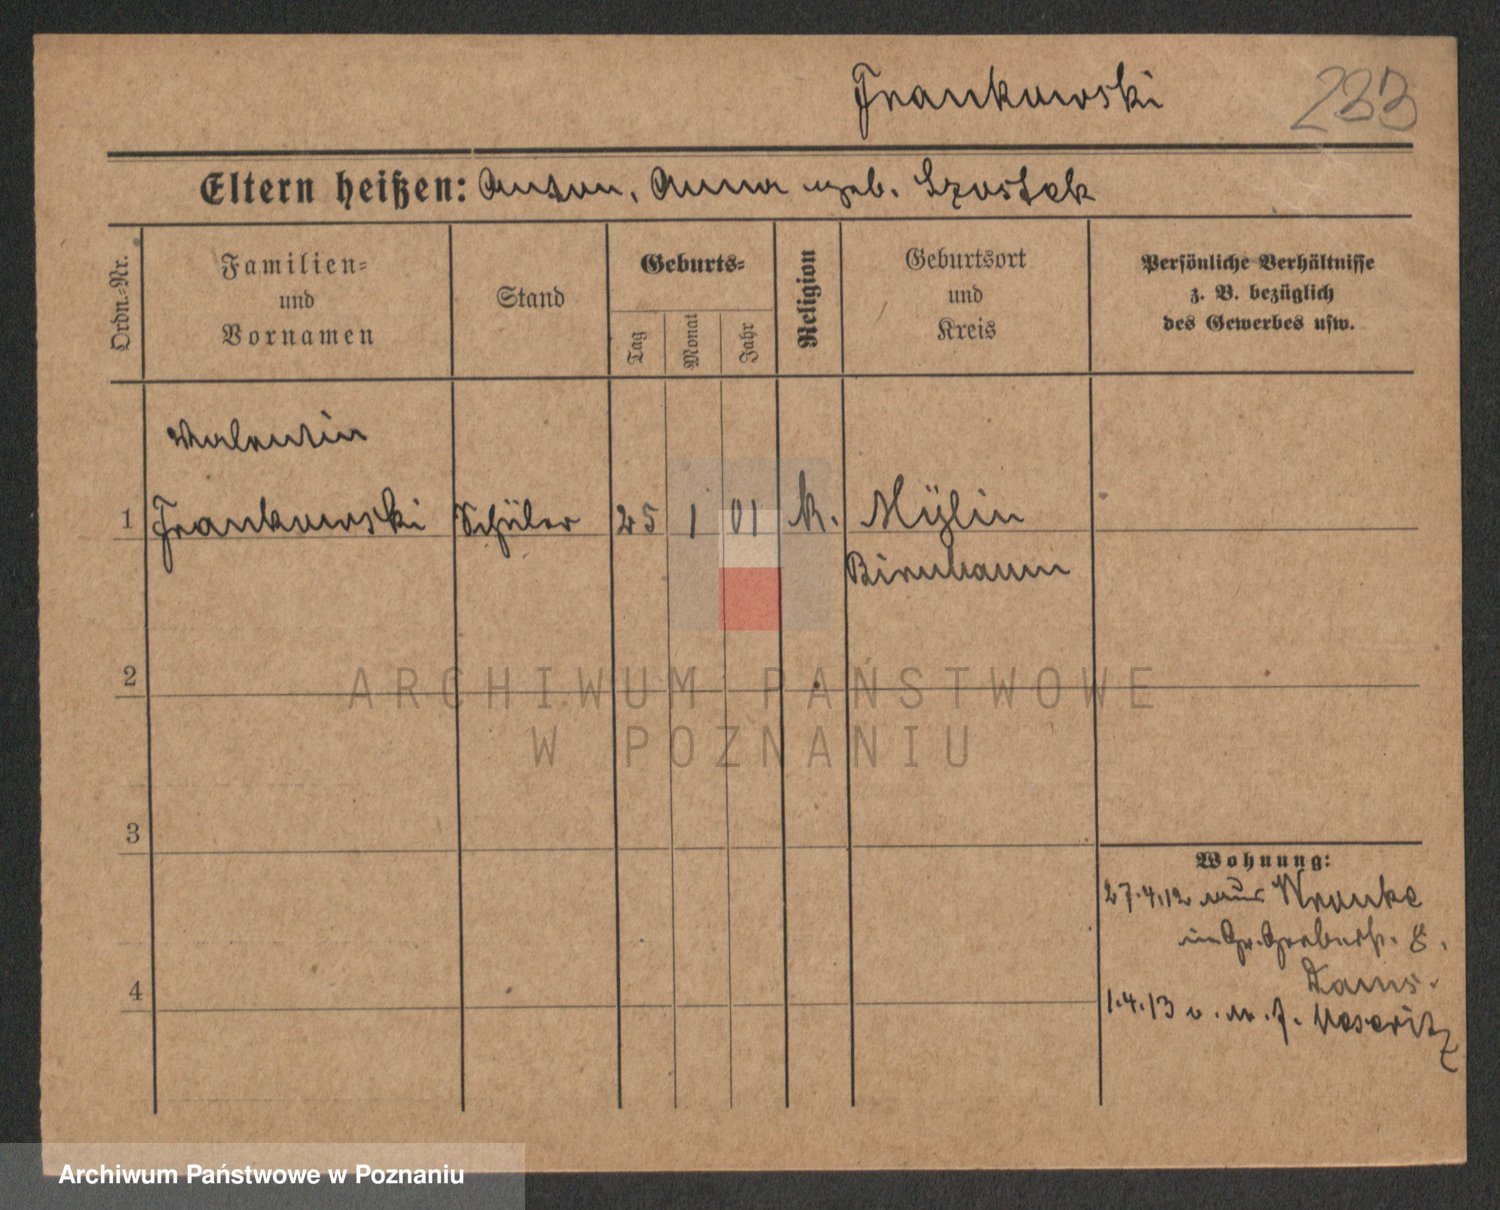 Frankowski 233
Eltern heißen: Anton, Anna geb. Szostak
Ordn.-Nr.
Familien-
und
Vornamen
Stand
Geburts-
Tag
Monat
Jahr
Religion
Geburtsort
und
Kreis
Persönliche Verhältnisse
z. B. bezüglich
des Gewerbes usw.
Valentin
1 Frankowski Schüler 25 1 01 k. Mylin
Birnbaum
2
ARCHIWUM PAŃSTWOWE
W POZNANIU
3
Wohnung:
27.4.12 aus Wronke
in Gr. Gerberstr. 8.
4
1.4.13 n. Meseritz
Archiwum Państwowe w Poznaniu